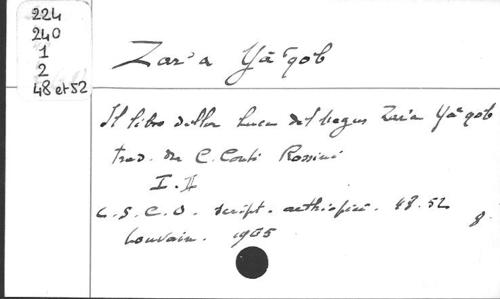 224
240
1
2
48 et 52
Zar'a Yā'qōb
Il libro della Luce del Negus Zar'a Yā'qōb
trad. da C. Conti Rossini
I. II
C. S. C. O. script. aethiopici. 48. 52
8.
Louvain. 1965